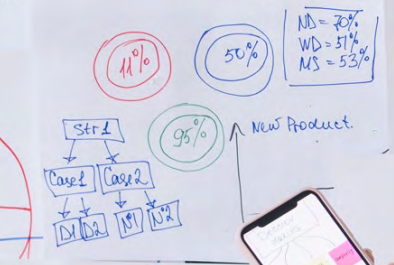 11%
50%
ND = 70%
WD = 51%
MS = 53%
95%
New Product.
Str1
Case1 Case2
D1 D2 N°1 N°2